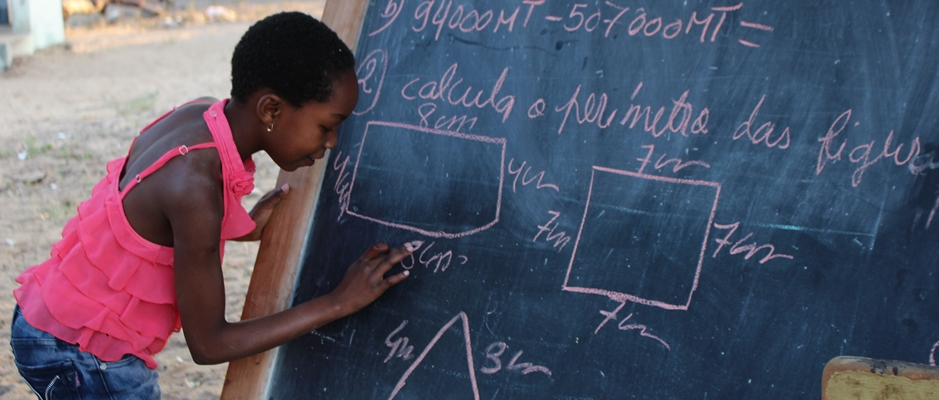 b) 94000MT - 507000MT =
2) calcula o perímetro das figuras
8cm
4cm
4cm
8cm
7cm
7cm
7cm
7cm
4m
3cm